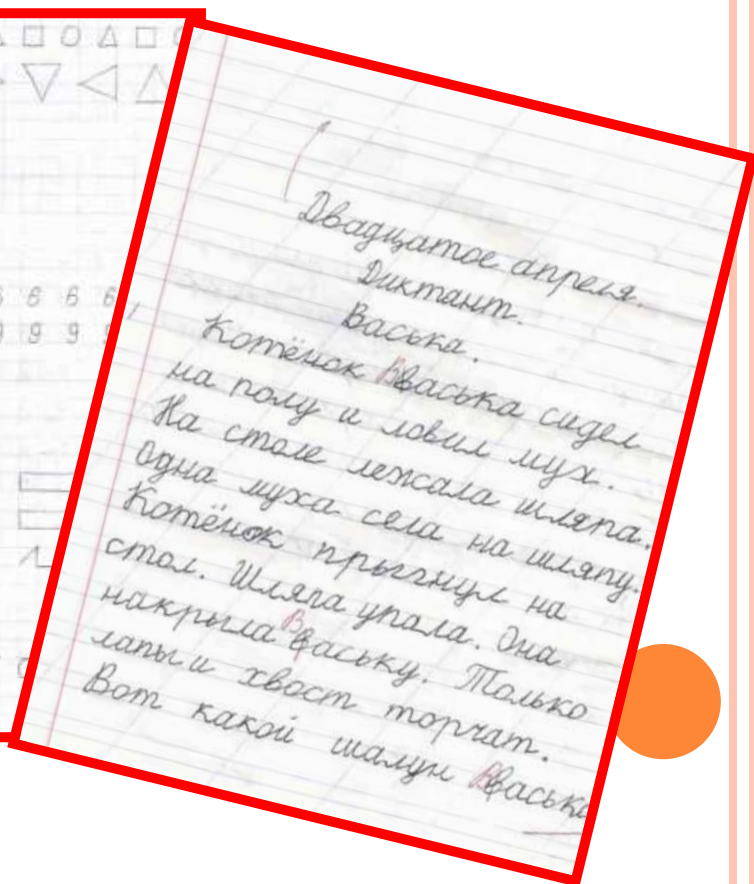 Двадцатое апреля.
Диктант.
Васька.
Котёнок Васька сидел
на полу и ловил мух.
На столе лежала шляпа.
Одна муха села на шляпу.
Котёнок прыгнул на
стол. Шляпа упала. Она
накрыла Ваську. Только
лапы и хвост торчат.
Вот какой шалун Васька